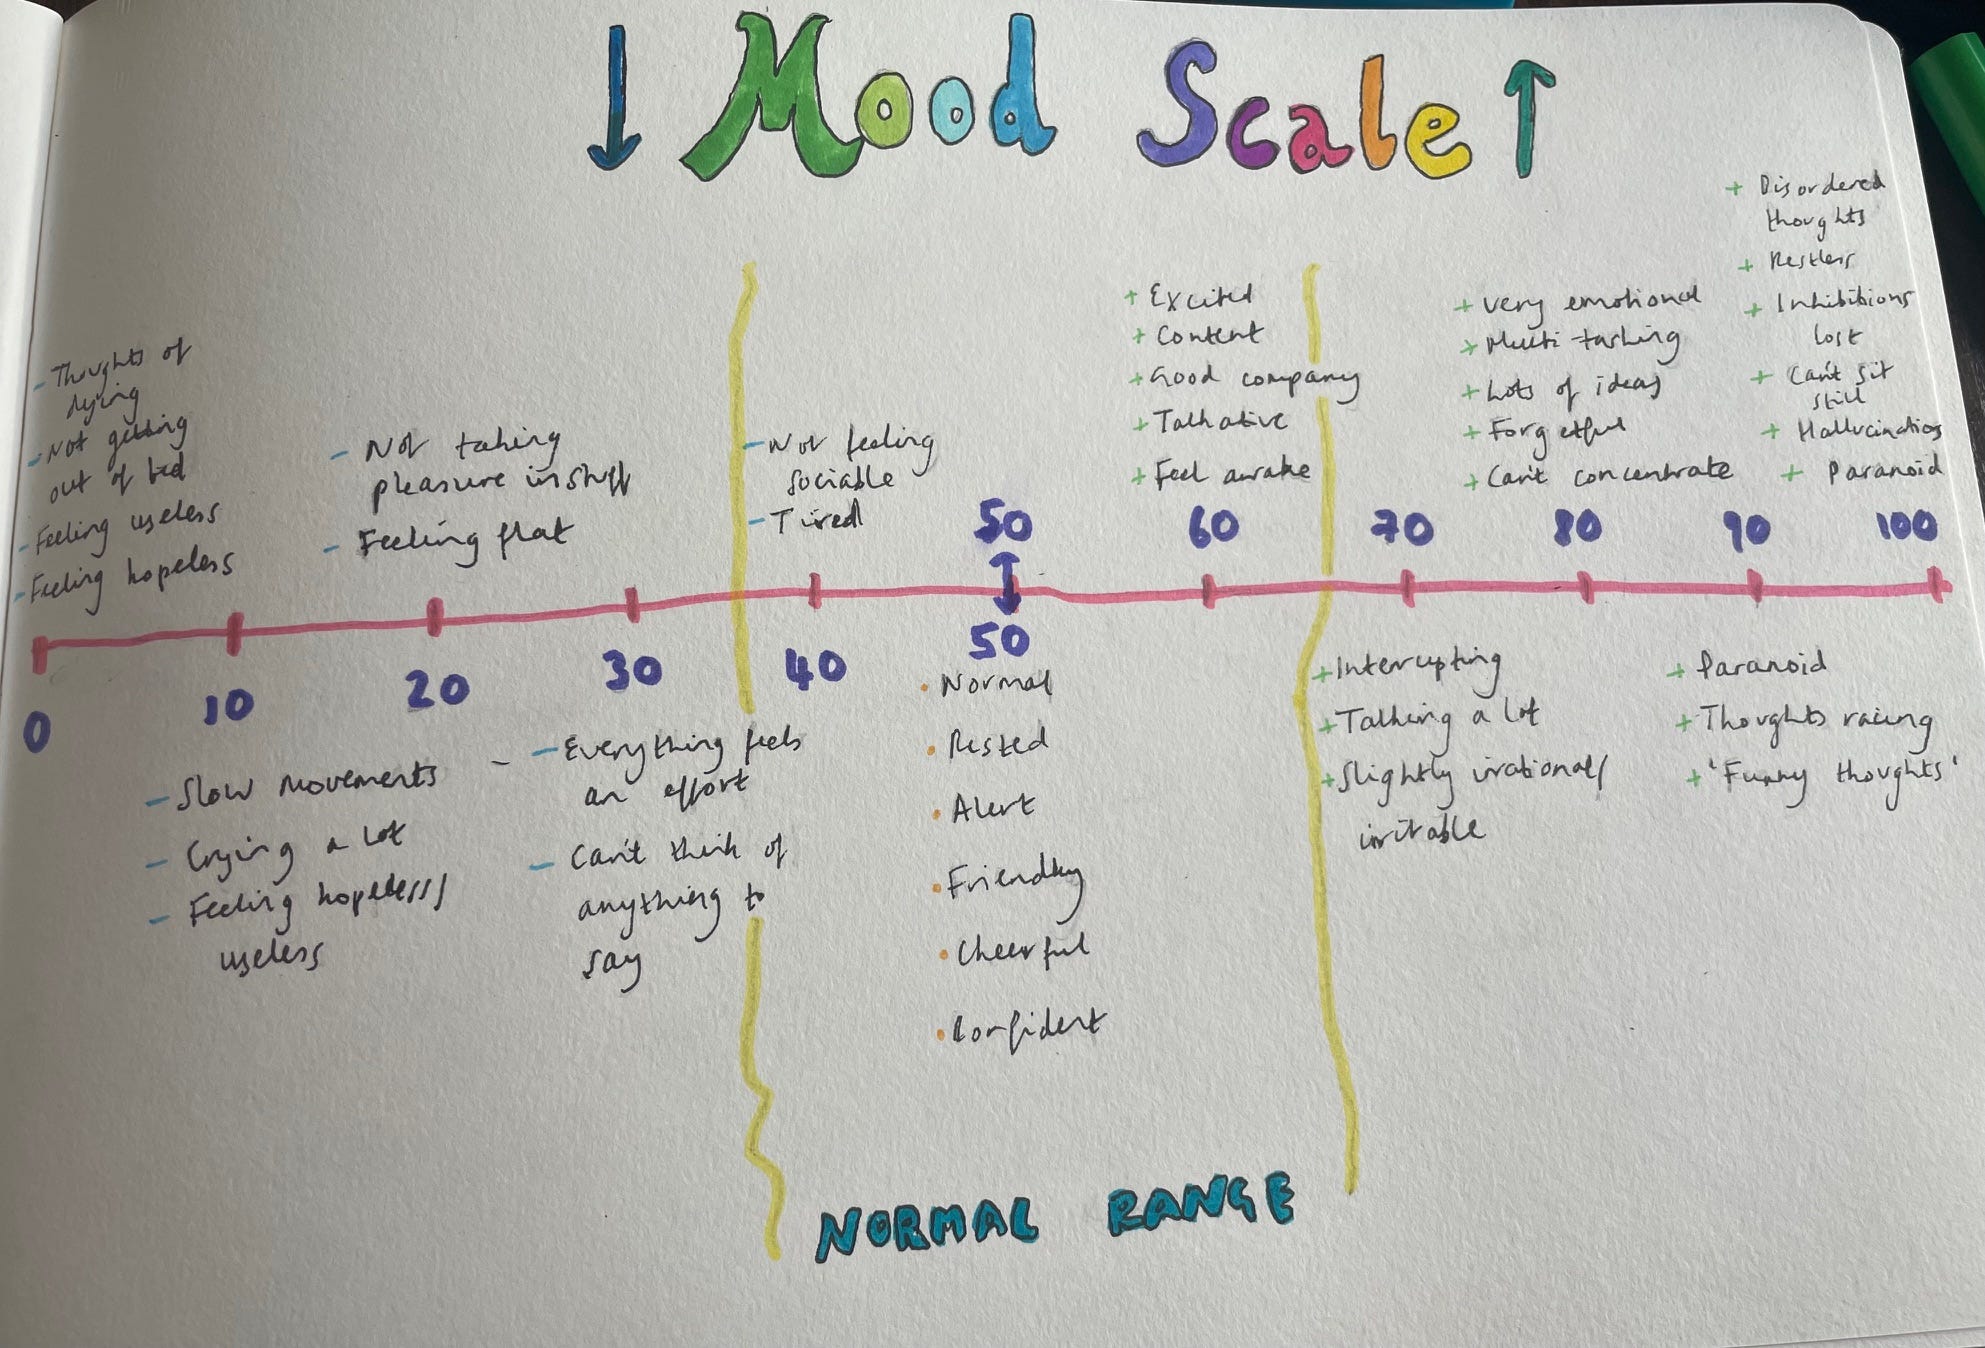 ↓ Mood Scale ↑
- Thoughts of
dying
- Not getting
out of bed
- Feeling useless
- Feeling hopeless
- Not taking
pleasure in stuff
- Feeling flat
- Not feeling
sociable
- Tired
+ Excited
+ Content
+ Good company
+ Talkative
+ Feel awake
+ very emotional
+ Multi-tasking
+ Lots of ideas
+ Forgetful
+ Can't concentrate
+ Disordered
thoughts
+ Restless
+ Inhibitions
lost
+ Can't sit
still
+ Hallucinations
+ Paranoid
50 60 70 80 90 100
0 10 20 30 40 50
- Slow movements
- Crying a lot
- Feeling hopeless/
useless
- Everything feels
an effort
- Can't think of
anything to
say
· Normal
· Rested
· Alert
· Friendly
· Cheerful
· Confident
+ Interrupting
+ Talking a lot
+ Slightly irrational/
irritable
+ Paranoid
+ Thoughts racing
+ 'Funny thoughts'
NORMAL RANGE